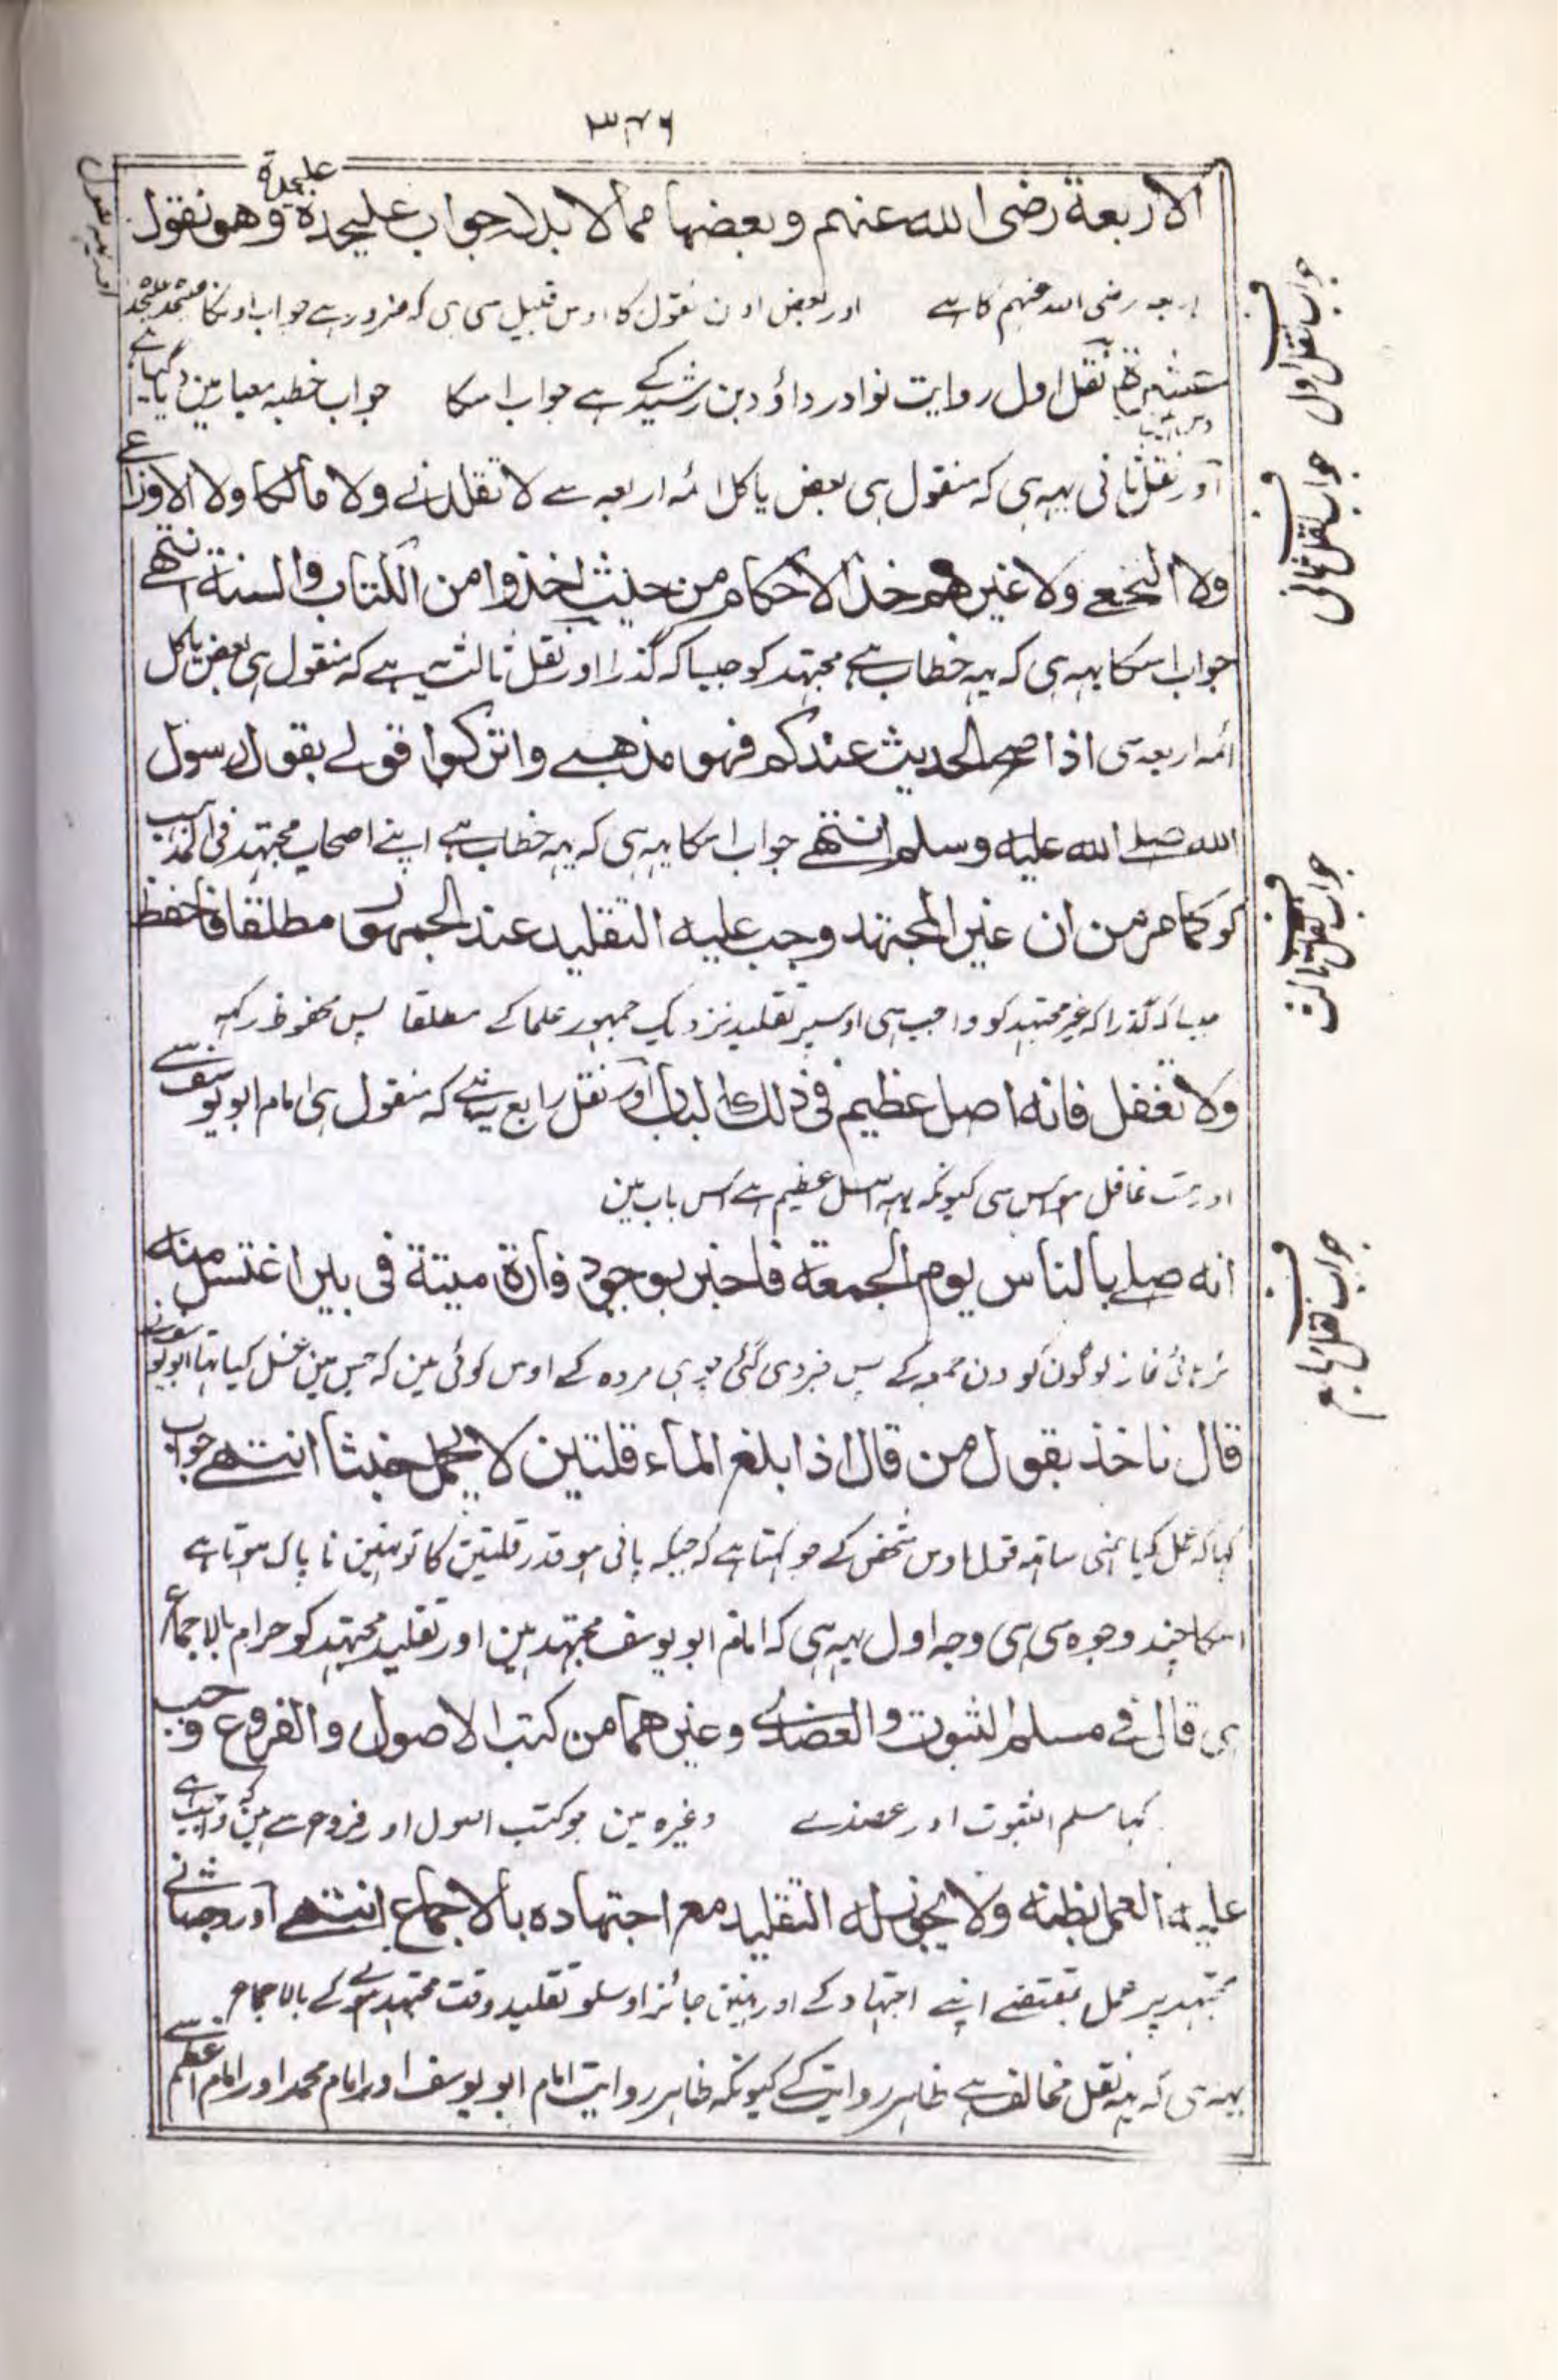 ۳۴۶
الاربعة رضی الله عنهم وبعضها مما لا بد له جواب علیحدة وهو نقول
علیحدة
اربعہ رضی اللہ عنہم کا ہے اور بعض اون نقول کا اوس قبیل سی ہی کہ ضرور ہے جواب اوسکا
عشرة نقل اول روایت نوادر داؤد بن رشید کے ہے جواب اسکا جواب خطبہ معیار مین دیا گیا ہے
آور نقل ثانی یہہ ہی کہ منقول ہی بعض یا کل ائمہ اربعہ سے لا تقلدنے ولا مالکا ولا الاوزاعے
ولا النخعے ولا غیرهم خذ الاحکام من حیث اخذوا من الکتاب والسنة انتهے
جواب اسکا یہہ ہی کہ یہہ خطاب ہے مجتہد کو جیسا کہ گذرا اور نقل ثالث یہہ ہے کہ منقول ہی بعض یا کل
ائمہ اربعہ سی اذا صح الحدیث عندکم فهو مذهبے واترکوا قولے بقول رسول
الله صلے الله علیه وسلم انتهے جواب اسکا یہہ ہی کہ یہہ خطاب ہے اپنے اصحاب مجتہد فی المذہب
کو کما مر من ان غیر المجتهد وجب علیه التقلید عند الجمهور مطلقا فاحفظ
جیسا کہ گذرا کہ غیر مجتہد کو واجب ہی اوسپر تقلید نزدیک جمہور علما کے مطلقا پس محفوظ رکہہ
ولا تغفل فانه اصل عظیم فی ذلك الباب آور نقل رابع یہہ ہے کہ منقول ہی امام ابو یوسف سے
اور مت غافل ہو اس سی کیونکہ یہہ اصل عظیم ہے اس باب مین
انه صلے بالناس یوم الجمعة فاخبر بوجود فارة میتة فی بیر اغتسل منه
پڑہائی نماز لوگون کو دن جمعہ کے پس خبر دی گئی چوہی مردہ کے اوس کوئی مین کہ جس مین غسل کیا تہا ابو یوسف نے
قال ناخذ بقول من قال اذا بلغ الماء قلتین لا یحمل خبثا انتهے جواب
کہا کہ عمل کیا ہمنی ساتہہ قول اوس شخص کے جو کہتا ہے کہ جبکہ پانی ہو قدر قلتین کا تو نہین ناپاک ہوتا ہے
اسکا چند وجوہ سی ہی وجہ اول یہہ ہی کہ امام ابو یوسف مجتہد ہین اور تقلید مجتہد کو حرام بالاجماع
ہی قال فے مسلم الثبوت والعضدے وغیرهما من کتب الاصول والفروع وجب
کہا مسلم الثبوت اور عضدے وغیرہ مین جو کتب اصول اور فروع سے ہین کہ واجب ہے
علیه العمل بظنه ولا یجوز له التقلید مع اجتهاده بالاجماع انتهے اور وجہ ثانے
مجتہد پر عمل بمقتضے اپنے اجتہاد کے اور نہین جائز اوسکو تقلید وقت مجتہد ہونے کے بالاجماع
یہہ ہی کہ یہہ نقل مخالف ہے ظاہر روایت کے کیونکہ ظاہر روایت امام ابو یوسف اور امام محمد اور امام اعظم سے
جواب نقل اول
جواب نقل ثانی
جواب نقل ثالث
جواب نقل رابع